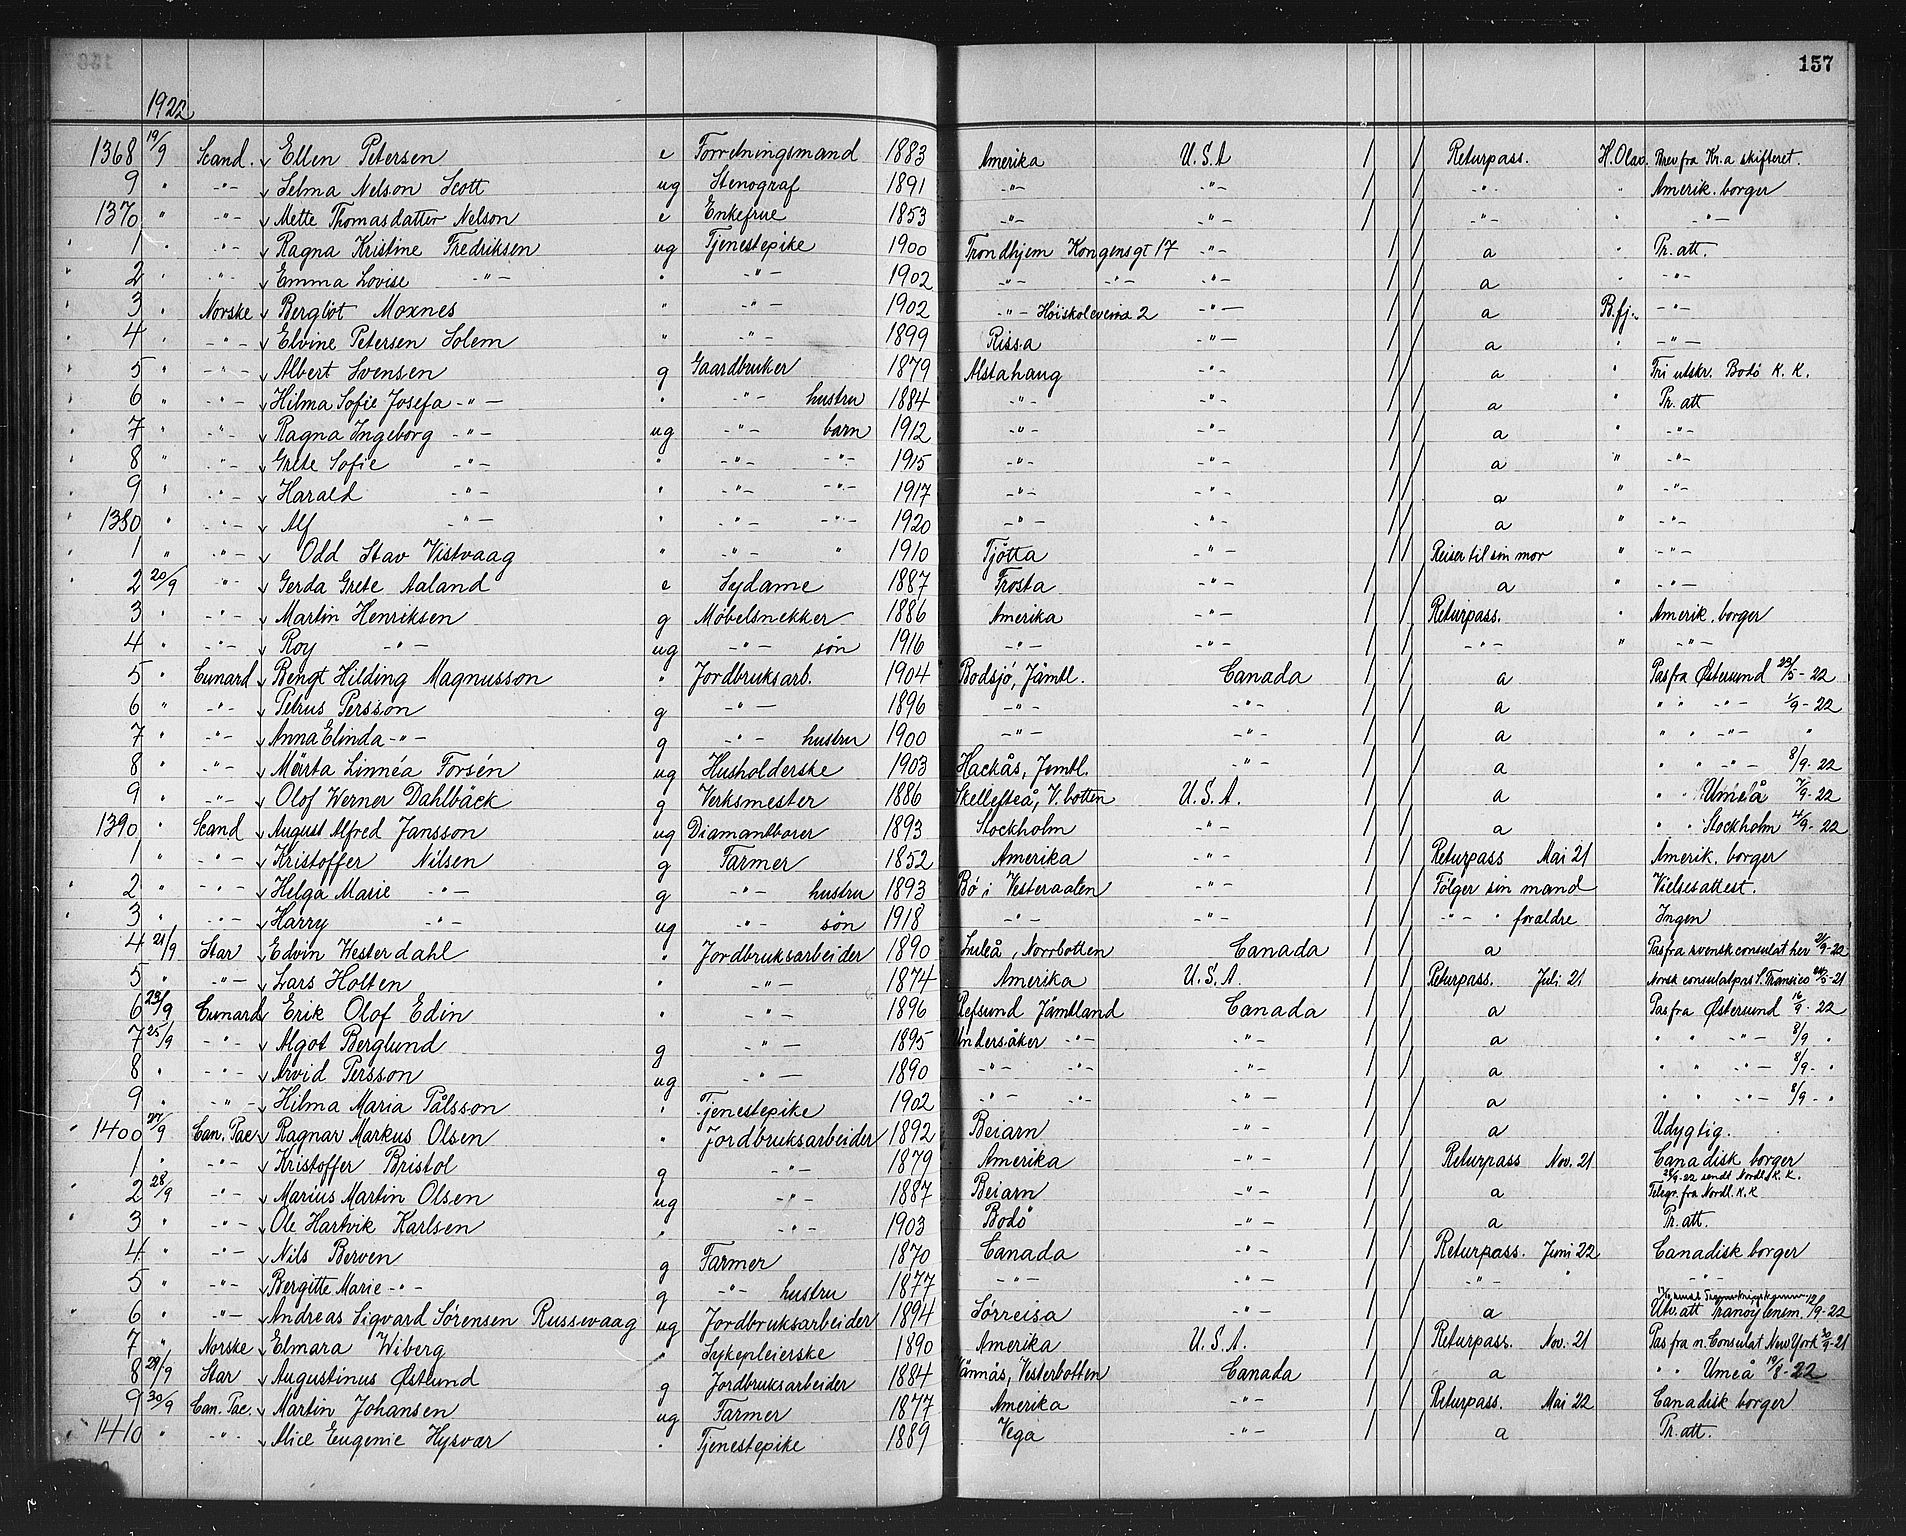 157
1922
1368 19/9 Scand. Ellen Petersen e Forretningsmand 1883 Amerika U.S.A / // Returpass. H. Olav. Brev fra Kr.a skifteret.
9 " -"- Selma Nelson Scott ug Stenograf 1891 -"- -"- / // -"- " Amerik. borger
1370 " -"- Mette Thomasdatter Nelson e Enkefrue 1853 -"- -"- / // -"- " -"-
1 " -"- Ragna Kristine Fredriksen ug Tjenestepike 1900 Trondhjem Kongensgt 17 -"- / // a " Pr. att.
2 " -"- Emma Lovise -"- " -"- 1902 -"- -"- -"- / // a " -"-
3 " Norske Bergliot Moxnes " -"- 1902 -"- Höiskoleveien 2 -"- / // a B.fj. -"-
4 " -"- Elvine Petersen Solem " -"- 1899 Rissa -"- / // a " -"-
5 " -"- Albert Svensen g Gaardbruker 1879 Alstahaug -"- / // a " Fri utskr. Bodö K. K.
6 " -"- Hilma Sofie Josefa -"- " -"- hustru 1884 -"- -"- / // a " Pr. att
7 " -"- Ragna Ingeborg -"- ug -"- barn 1912 -"- -"- / // a " -"-
8 " -"- Grete Sofie -"- " -"- -"- 1915 -"- -"- / // a " -"-
9 " -"- Harald -"- " -"- -"- 1917 -"- -"- / // a " -"-
1380 " -"- Alf -"- " -"- -"- 1920 -"- -"- / // a " -"-
1 " -"- Odd Stav Vistvaag " -"- " 1910 Tjötta -"- / // Reiser til sin mor " -"-
2 20/9 -"- Gerda Grete Aaland e Sydame 1887 Frosta -"- / // a " -"-
3 " -"- Martin Henriksen g Möbelsnekker 1886 Amerika -"- / // Returpass. " Amerik. borger
4 " -"- Roy -"- ug -"- sön 1916 -"- -"- / // -"- " -"-
5 " Cunard Bengt Hilding Magnusson " Jordbruksarb. 1904 Bodsjö, Jämtl. Canada / // a Pas fra Østersund 23/5-22
6 " -"- Petrus Persson g -"- 1896 -"- -"- / // a " " -"- 1/9-22
7 " -"- Anna Elinda -"- g -"- hustru 1900 -"- -"- / // a " " -"- "
8 " -"- Märta Linnéa Forsén ug Husholderske 1903 Hackås, Jemtl. -"- / // a " " -"- 8/9-22
9 " -"- Olof Werner Dahlbäck g Verksmester 1886 Skellefteå, V.botten U.S.A. / // a " " Umeå 7/9-22
1390 " Scand August Alfred Jansson ug Diamantborer 1893 Stockholm -"- / // a " " Stockholm 4/9-22
1 " -"- Kristoffer Nilsen g Farmer 1852 Amerika -"- / // Returpass Mai 21 Amerik. borger
2 " -"- Helga Marie -"- g -"- hustru 1893 Bö i Vesteraalen -"- / // Fölger sin mand Vielsesattest.
3 " -"- Harry -"- ug -"- sön 1918 -"- -"- / // -"- " foraldre Ingen
4 21/9 Star Edvin Westerdahl " Jordbruksarbeider 1890 Luleå, Norrbotten Canada / // a Pas fra svensk consulat her 21/9-22
5 " -"- Lars Holten " -"- 1874 Amerika U.S.A. / // Returpass. Juli 21 Norsk consulatpas S. Francisco -21
6 23/9 Cunard Erik Olof Edin " -"- 1896 Refsund Jämtland Canada / // a Pas fra Østersund 16/9-22
7 25/9 -"- Algot Berglund g -"- 1895 Undersåker -"- -"- / // a " " -"- 8/9 "
8 " -"- Arvid Persson ug -"- 1890 -"- -"- -"- / // a " " -"- 8/9- "
9 " -"- Hilma Maria Pålsson " Tjenestepike 1902 -"- -"- -"- / // a " " -"- 8/9- "
1400 27/9 Can. Pac Ragnar Markus Olsen " Jordbruksarbeider 1892 Beiarn -"- / // a Udygtig.
1 " -"- Kristoffer Bristol g -"- 1879 Amerika -"- / // Returpass Nov. 21 Canadisk borger
2 28/9 -"- Marius Martin Olsen ug -"- 1887 Beiarn -"- / // a 28/9-22 sendt Nordl. K. K. Telegr. fra Nordl. K. K
3 " -"- Ole Hartvik Karlsen " -"- 1903 Bodö -"- / // a Pr. att.
4 " -"- Nils Berven g Farmer 1870 Canada -"- / // Returpass. Juni 22 Canadisk borger
5 " -"- Bergitte Marie -"- g -"- hustru 1877 -"- -"- / // -"- " -"-
6 " -"- Andreas Sigvard Sörensen Russevaag ug Jordbruksarbeider 1894 Sörreisa -"- / // a Utv. att Tranöy lensm. 12/9-22
7 " Norske Elmara Wiberg " Sykepleierske 1890 Amerika U.S.A. / // Returpass. Nov. 21 Pas fra n. Consulat New York -21
8 29/9 Star Augustinus Østlund g Jordbruksarbeider 1884 Vännäs, Vesterbotten Canada / // a " " Umeå 19/8-22
9 30/9 Can. Pac. Martin Johansen ug Farmer 1877 Amerika -"- / // Returpass. Mai 22 Canadisk borger
1410 " -"- Alice Eugenie Hysvær " Tjenestepike 1889 Vega -"- / // a Pr. att.